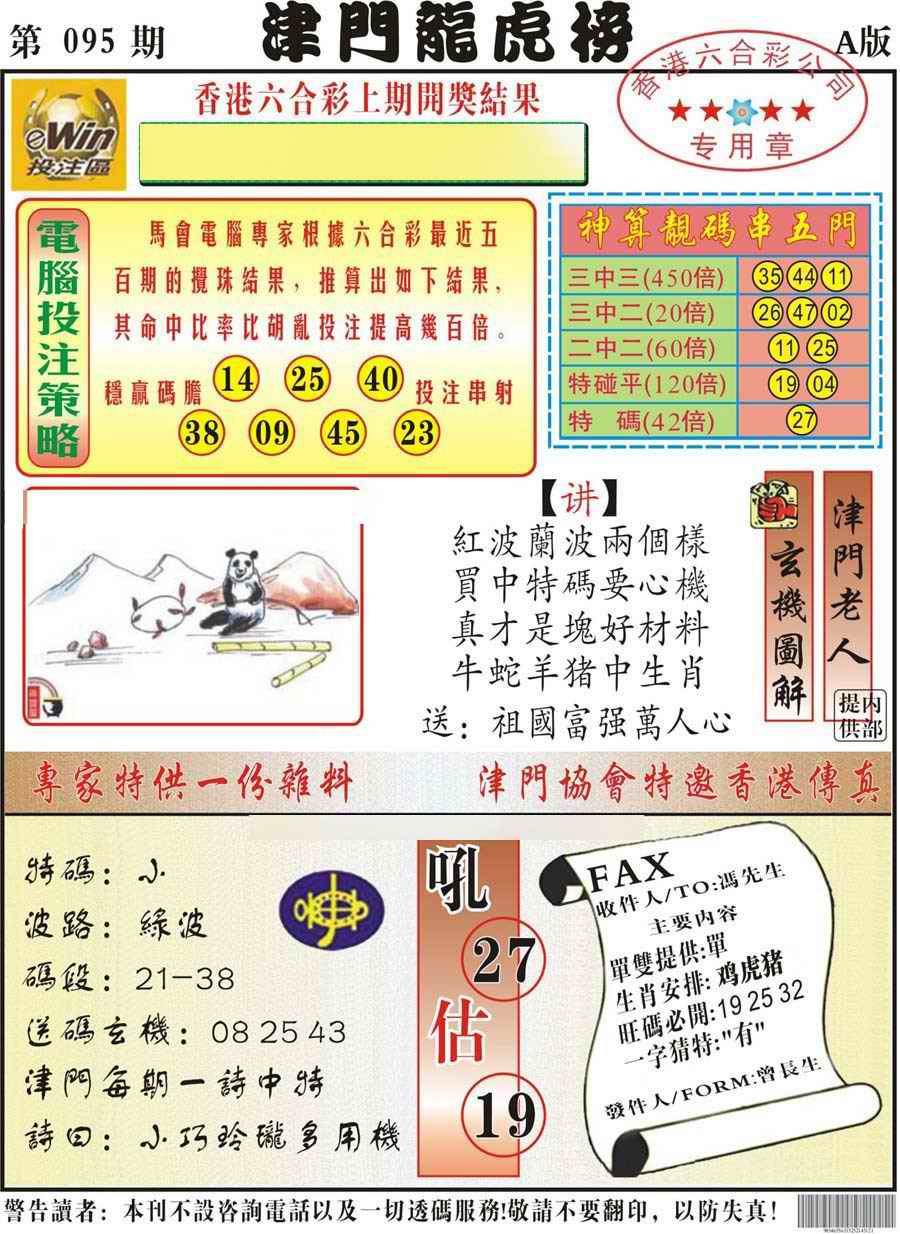 第 095 期
津門龍虎榜
A版
香港六合彩公司
专用章
香港六合彩上期開獎結果
eWin
投注區
電腦投注策略
馬會電腦專家根據六合彩最近五
百期的攪珠結果，推算出如下結果，
其命中比率比胡亂投注提高幾百倍。
穩贏碼膽 14 25 40 投注串射
38 09 45 23
神算靚碼串五門
三中三(450倍) 35 44 11
三中二(20倍) 26 47 02
二中二(60倍) 11 25
特碰平(120倍) 19 04
特 碼(42倍) 27
【讲】
紅波蘭波兩個樣
買中特碼要心機
真才是塊好材料
牛蛇羊猪中生肖
送：祖國富强萬人心
玄機圖解
津門老人
内部提供
專家特供一份雜料
津門協會特邀香港傳真
特碼：小
波路：綠波
碼段：21—38
送碼玄機：08 25 43
津門每期一詩中特
詩曰：小巧玲瓏多用機
吼
27
估
19
FAX
收件人/TO:馮先生
主要内容
單雙提供:單
生肖安排:鸡虎猪
旺碼必開:19 25 32
一字猜特:"有"
發件人/FORM:曾長生
警告讀者：本刊不設咨詢電話以及一切透碼服務!敬請不要翻印，以防失真！